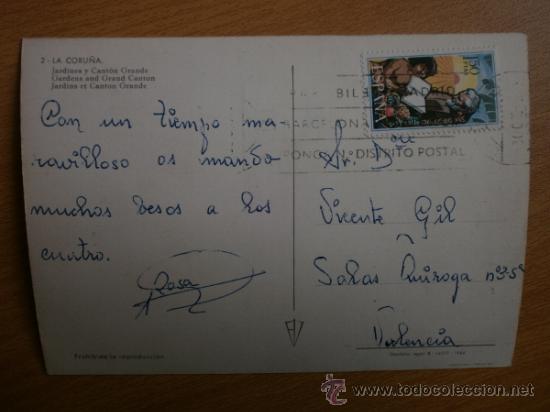 2 - LA CORUÑA.
Jardines y Cantón Grande
Gardens and Grand Canton
Jardins et Canton Grande
Con un tiempo ma-
ravilloso os mando
muchos besos a los
cuatro.
Rosa
BILBAO MADRID
BARCELONA
PONGA Nº DISTRITO POSTAL
ESPAÑA
Sr. D.
Vicente Gil
Salas Quiroga nº 3-5ª
Valencia
Prohibida la reproducción
todocoleccion
http://www.todocoleccion.net